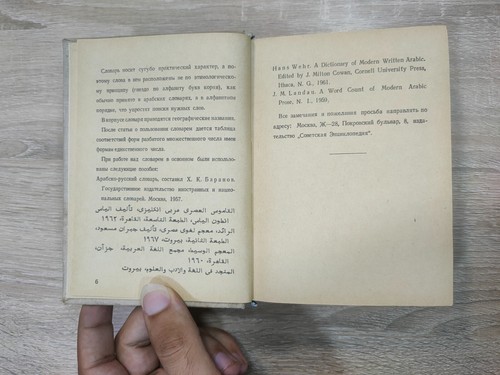 Словарь носит сугубо практический характер, а по-
этому слова в нем расположены не по этимологическо-
му принципу (гнездо по алфавиту букв корня), как
обычно принято в арабских словарях, а в алфавитном
порядке, что упростит поиски нужных слов.
В корпусе словаря приводятся географические названия.
После статьи о пользовании словарем дается таблица
соответствий форм разбитого множественного числа име-
ни формам единственного числа.
При работе над словарем в основном были использо-
ваны следующие пособия:
Арабско-русский словарь, составил Х. К. Баранов.
Государственное издательство иностранных и нацио-
нальных словарей. Москва, 1957.
القاموس العصرى عربى انكليزى، تأليف الياس
انطون الياس، الطبعة التاسعة، القاهرة، ١٩٦٢
الرائد، معجم لغوى عصرى، تأليف جبران مسعود،
الطبعة الثانية، بيروت، ١٩٦٧
المعجم الوسيط، مجمع اللغة العربية، جزآن،
القاهرة، ١٩٦٠
المنجد فى اللغة والادب والعلوم، بيروت
6
Hans Wehr. A Dictionary of Modern Written Arabic.
Edited by J. Milton Cowan, Cornell University Press,
Ithaca, N. Q., 1961.
J. M. Landau. A Word Count of Modern Arabic
Prose, N. I., 1959.
Все замечания и пожелания просьба направлять по
адресу: Москва, Ж—28, Покровский бульвар, 8, изда-
тельство „Советская Энциклопедия".